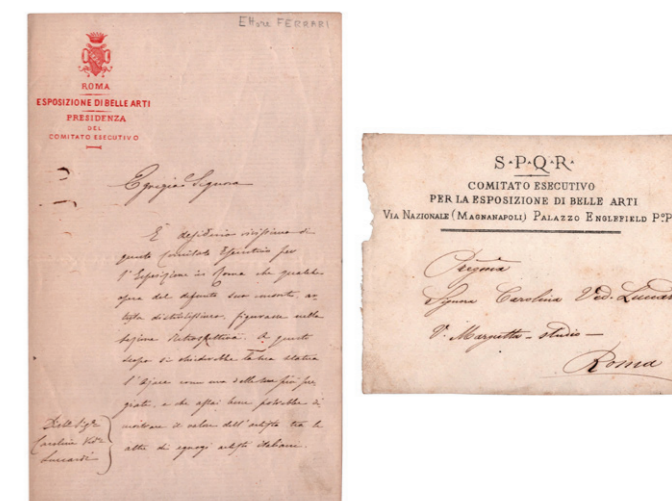 Ettore FERRARI
ROMA
ESPOSIZIONE DI BELLE ARTI
PRESIDENZA
DEL
COMITATO ESECUTIVO
Egregia Signora
È desiderio vivissimo di
questo Comitato Esecutivo per
l'Esposizione in Roma che qualche
opera del defunto suo marito, ar
tista distintissimo, figurasse nella
sezione Retrospettiva. A questo
scopo si chiederebbe la sua statua
l'Ajace come una delle sue più pre
giate, e che assai bene potrebbe di
mostrare il valore dell'artista tra le
altre di egregi artisti italiani.
Carolina Ved.
Luccardi
S·P·Q·R·
COMITATO ESECUTIVO
PER LA ESPOSIZIONE DI BELLE ARTI
VIA NAZIONALE (MAGNANAPOLI) PALAZZO ENGLEFIELD
Signora Carolina Ved.
Va. Margutta - studio -
Roma